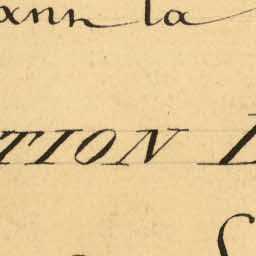 ann la
TION L